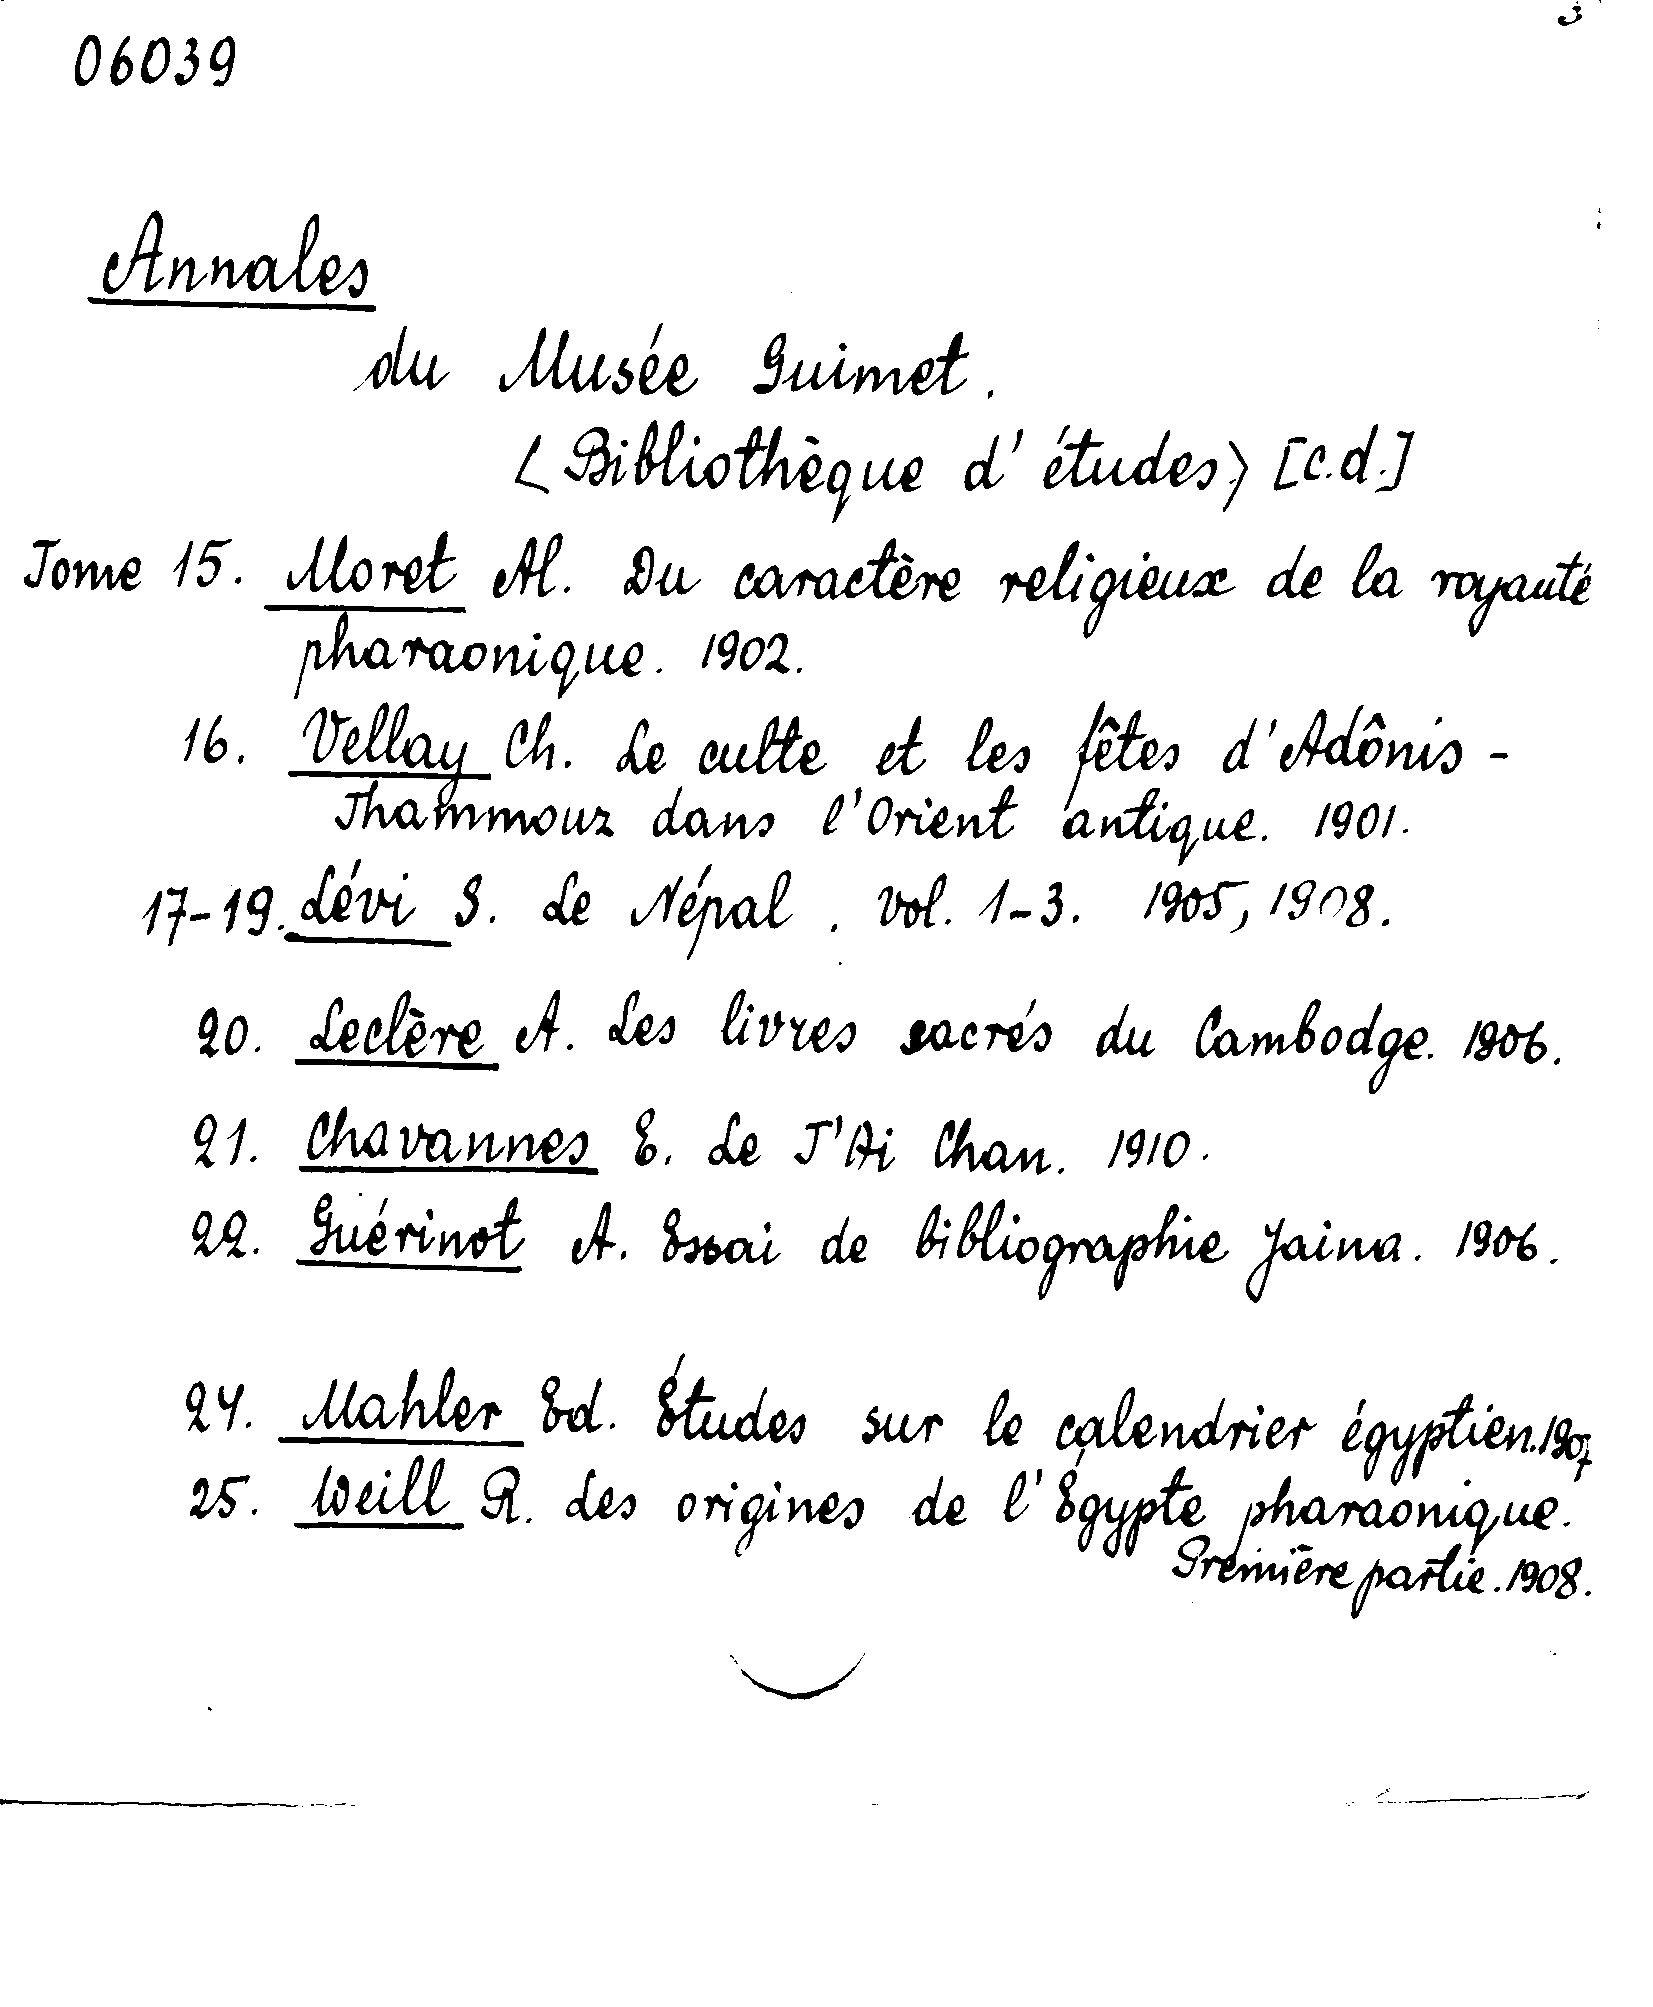 3
06039
Annales
du Musée Guimet.
<Bibliothèque d'études> [c.d.]
Tome 15. Moret Al. Du caractère religieux de la royauté
pharaonique. 1902.
16. Vellay Ch. Le culte et les fêtes d'Adônis -
Thammouz dans l'Orient antique. 1901.
17-19. Lévi S. Le Népal. Vol. 1-3. 1905, 1908.
20. Leclère A. Les livres sacrés du Cambodge. 1906.
21. Chavannes E. Le T'Ai Chan. 1910.
22. Guérinot A. Essai de bibliographie Jaina. 1906.
24. Mahler Ed. Études sur le calendrier égyptien. 1907
25. Weill R. Les origines de l'Égypte pharaonique.
Première partie. 1908.